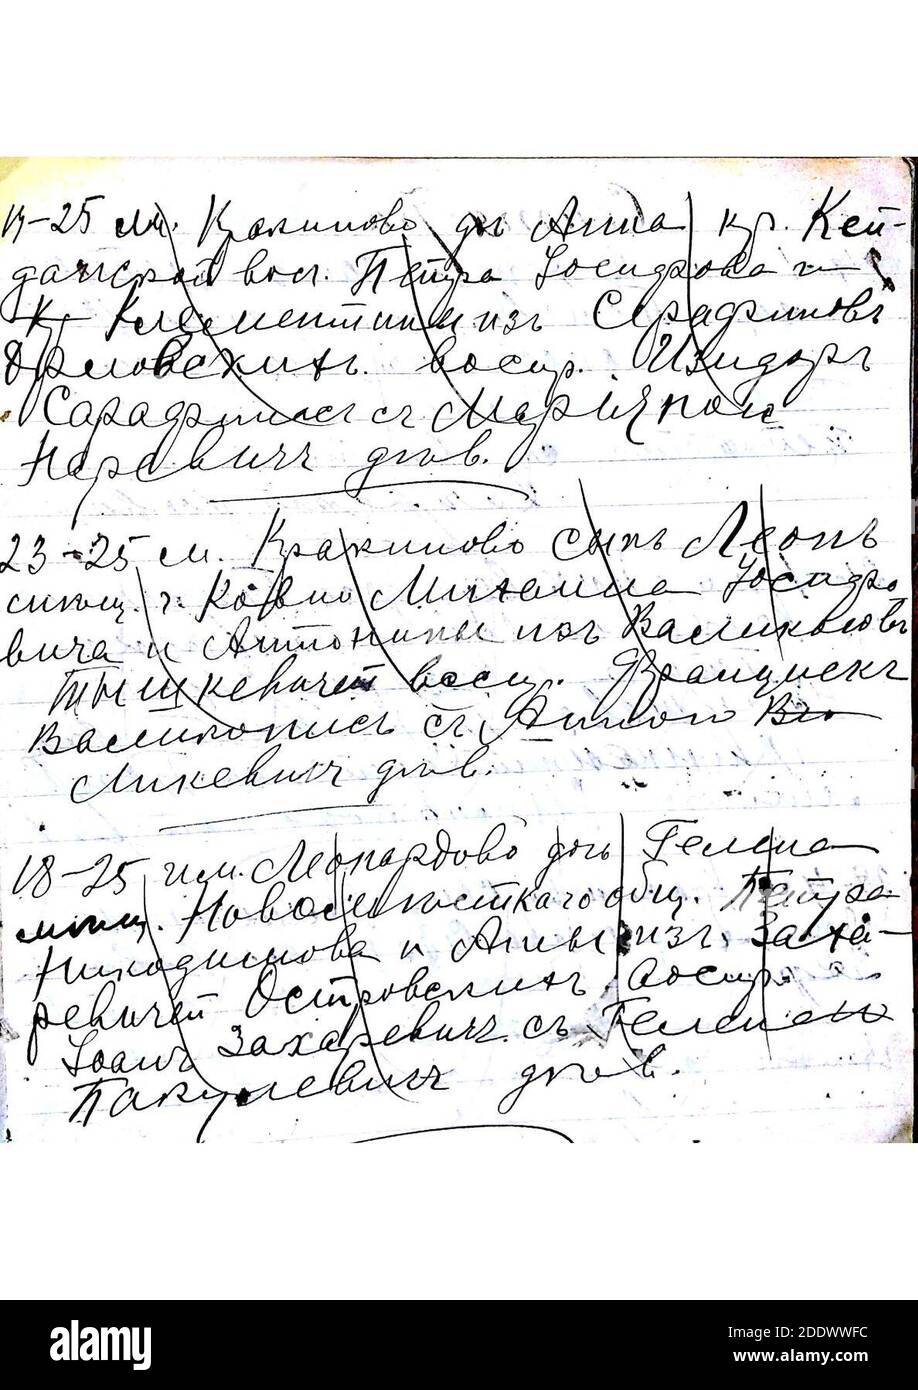 17-25 м. Кракиново дч Анна кр. Кей-
данской вол. Петра Іосифова и
Клементины изъ Серафиновъ
Орловскихъ. воспр. Изидоръ
Сарафинасъ съ Маріянной
Наревичъ дѣв.
23-25 м. Кракиново сынъ Леонъ
мѣщ. г. Ковно Михаила Іосифо
вича и Антонины изъ Валиконовъ
Тышкевичей восп. Францискъ
Валиконисъ съ Анною
Ликевичъ дѣв.
18-25 им. Леонардово дочь Гелена
мѣщ. Новоселжеткаго общ. Петра
Никодимова и Анны изъ Заха-
ревичей Островскихъ воспр.
Іоанъ Захаревичъ съ Геленою
Пакулевичъ дѣв.
alamy
Image ID: 2DDWWFC
www.alamy.com